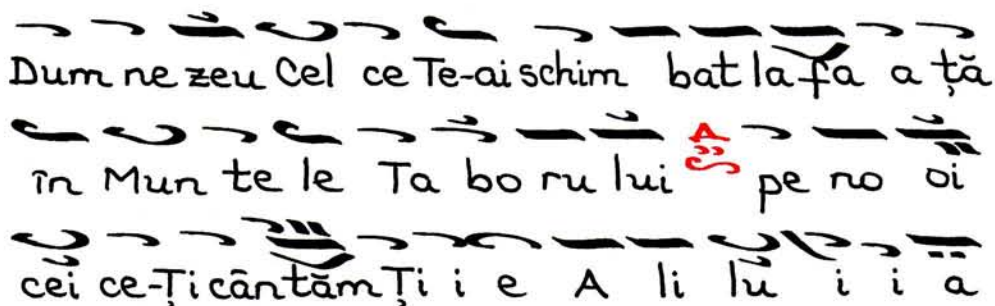 Dum ne zeu Cel ce Te-ai schim bat la fa a ță
în Mun te le Ta bo ru lui pe no oi
cei ce-Ți cân tăm Ți i e A li lu i i a